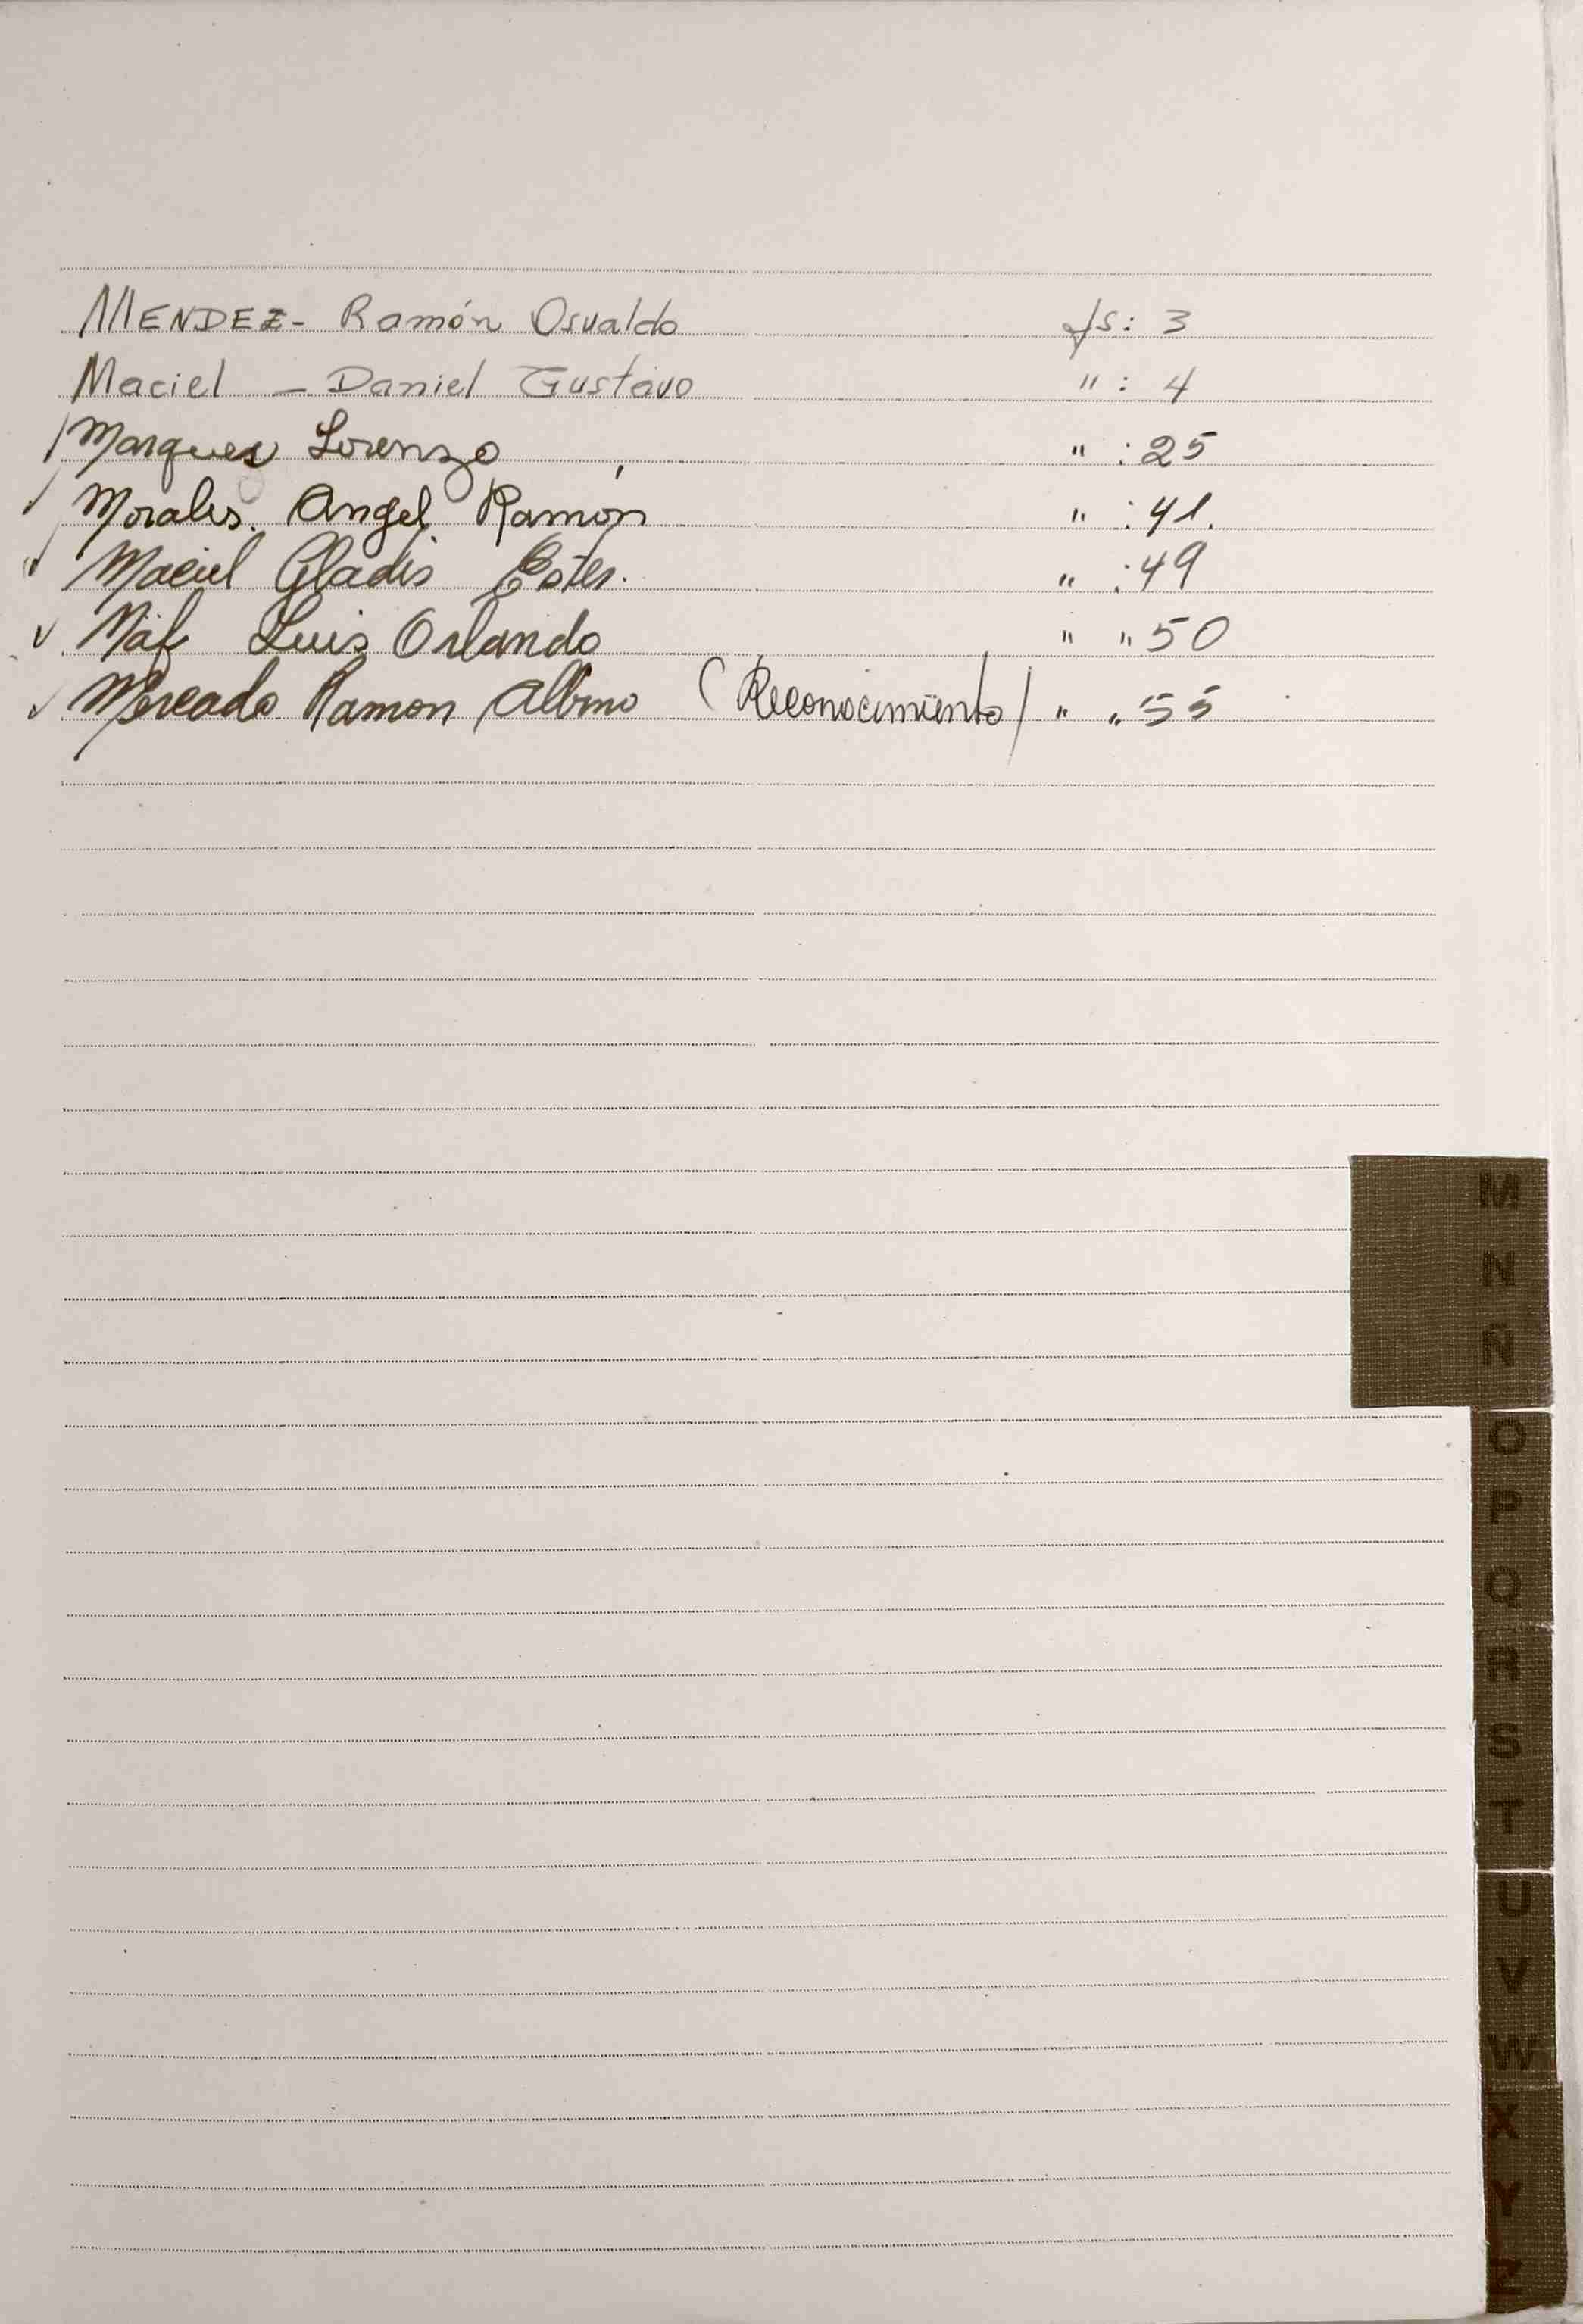 MENDEZ - Ramón Osvaldo fs: 3
Maciel - Daniel Gustavo " : 4
Marquez Lorenzo " : 25
Morales. Angel Ramón " : 41.
Maciel Gladis Ester. " : 49
Luis Orlando " " 50
Mercado Ramon Albino (Reconocimiento) " " 55
M
N
Ñ
O
P
Q
R
S
T
U
V
W
X
Y
Z